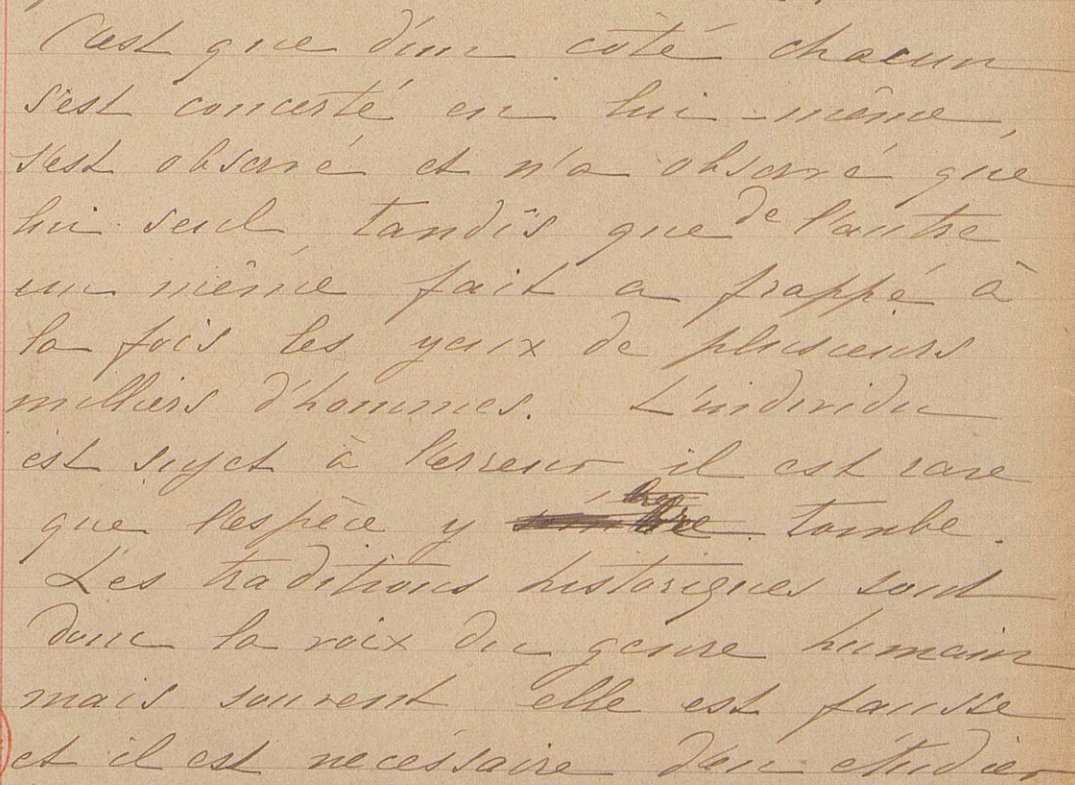 C'est que d'un côté chacun
s'est concerté en lui-même,
s'est observé et n'a observé que
lui seul, tandis que de l'autre
un même fait a frappé à
la fois les yeux de plusieurs
milliers d'hommes. L'individu
est sujet à l'erreur il est rare
que l'espèce y tombe.
Les traditions historiques sont
donc la voix du genre humain
mais souvent elle est fausse
et il est necéssaire d'en étudier